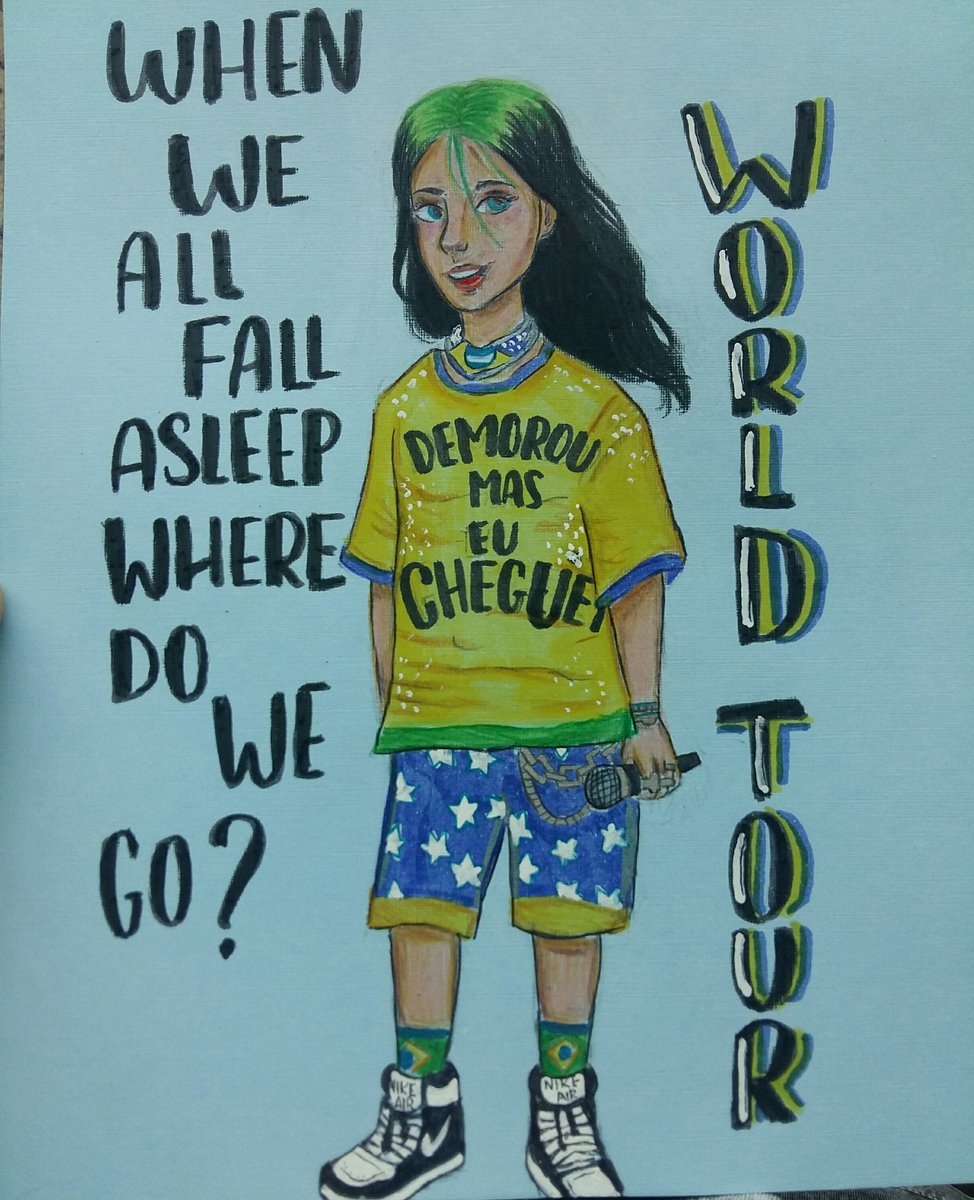 WHEN
WE
ALL
FALL
ASLEEP
WHERE
DO
WE
GO?
DEMOROU
MAS
EU
CHEGUEI
NIKE
AIR
NIKE
AIR
WORLD
TOUR